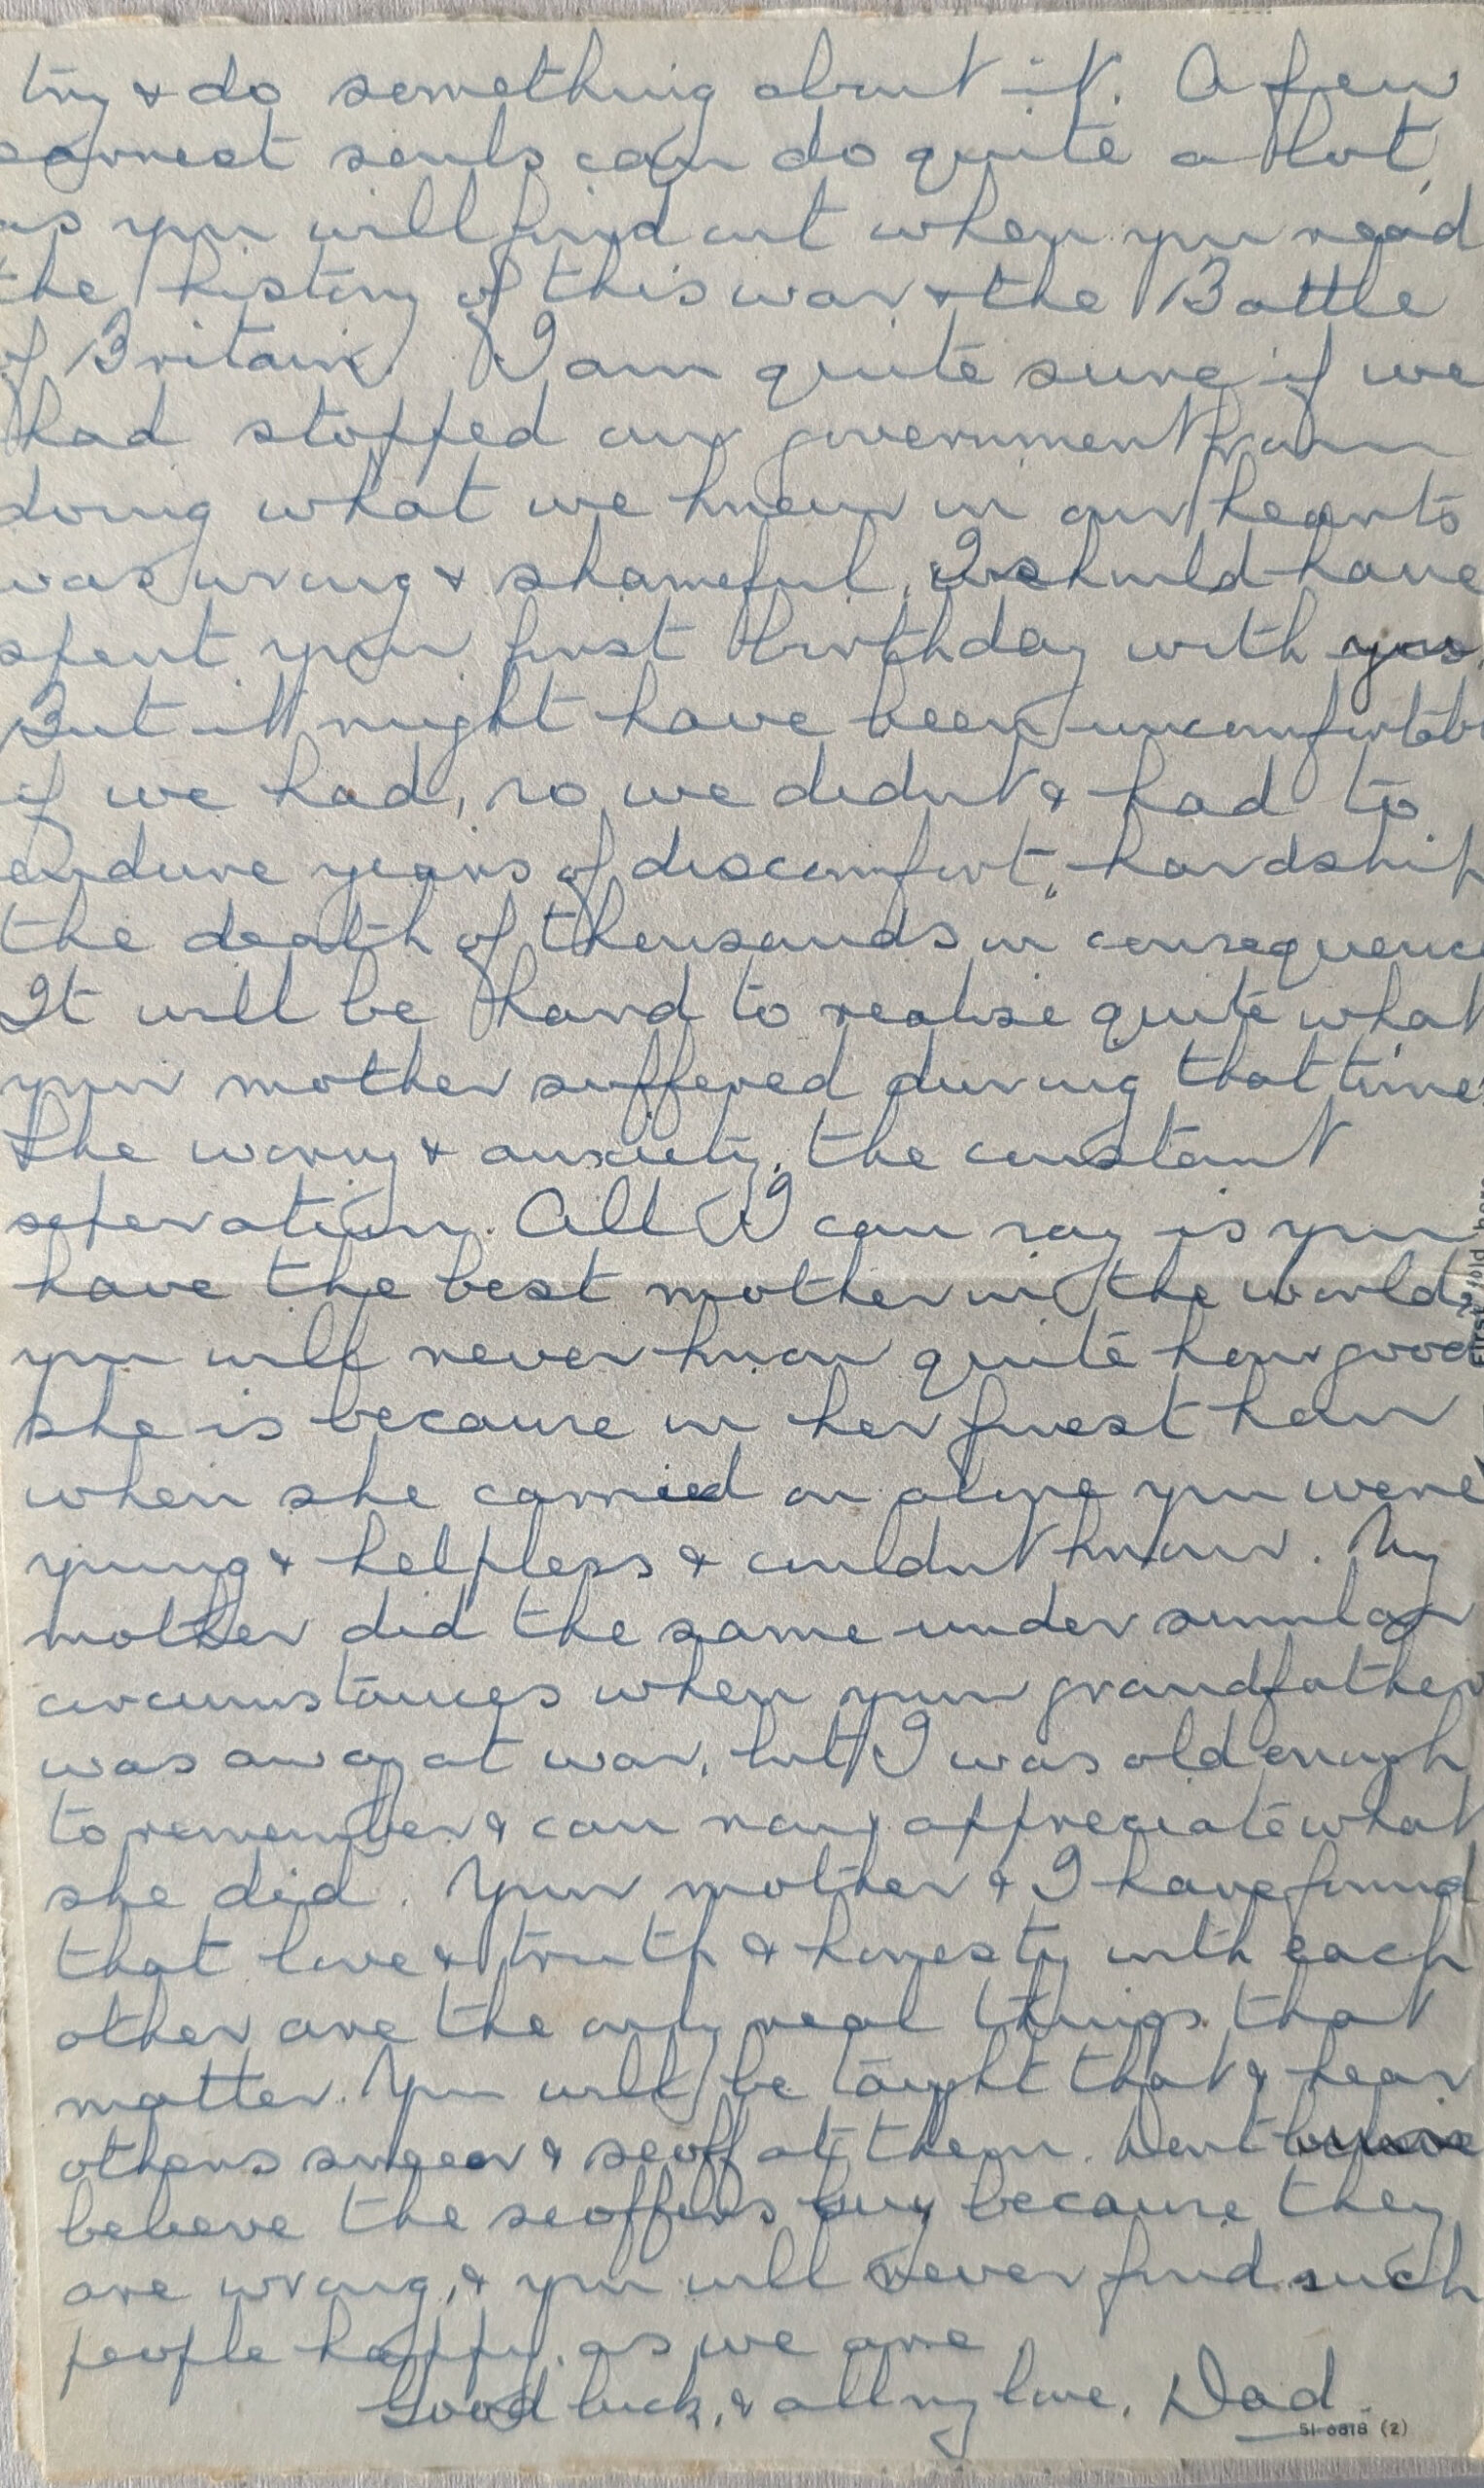 try & do something about it. A few
earnest souls can do quite a lot,
as you will find out when you read
the history of this war & the Battle
of Britain. I am quite sure if we
had stopped our government from
doing what we knew in our hearts
was wrong & shameful, I should have
spent your first birthday with you.
But it might have been uncomfortable
if we had, so we didnt & had to
endure years of discomfort, hardship
the death of thousands in consequence
It will be hard to realise quite what
your mother suffered during that time
the worry & anxiety, the constant
seperation. All I can say is you
have the best mother in the world &
you will never know quite how good
she is because in her finest hour
when she carried on alone you were
young & helpless & couldnt know. My
mother did the same under similar
circumstances when your grandfather
was away at war, but I was old enough
to remember & can now appreciate what
she did. Your mother & I have found
that love & truth & honesty with each
other are the only real things that
matter. You will be taught that & hear
others sneer & scoff at them. Dont
believe the scoffers because they
are wrong, & you will never find such
people happy, as we are.
Good luck, & all my love, Dad.
51-6818 (2)
First fold here